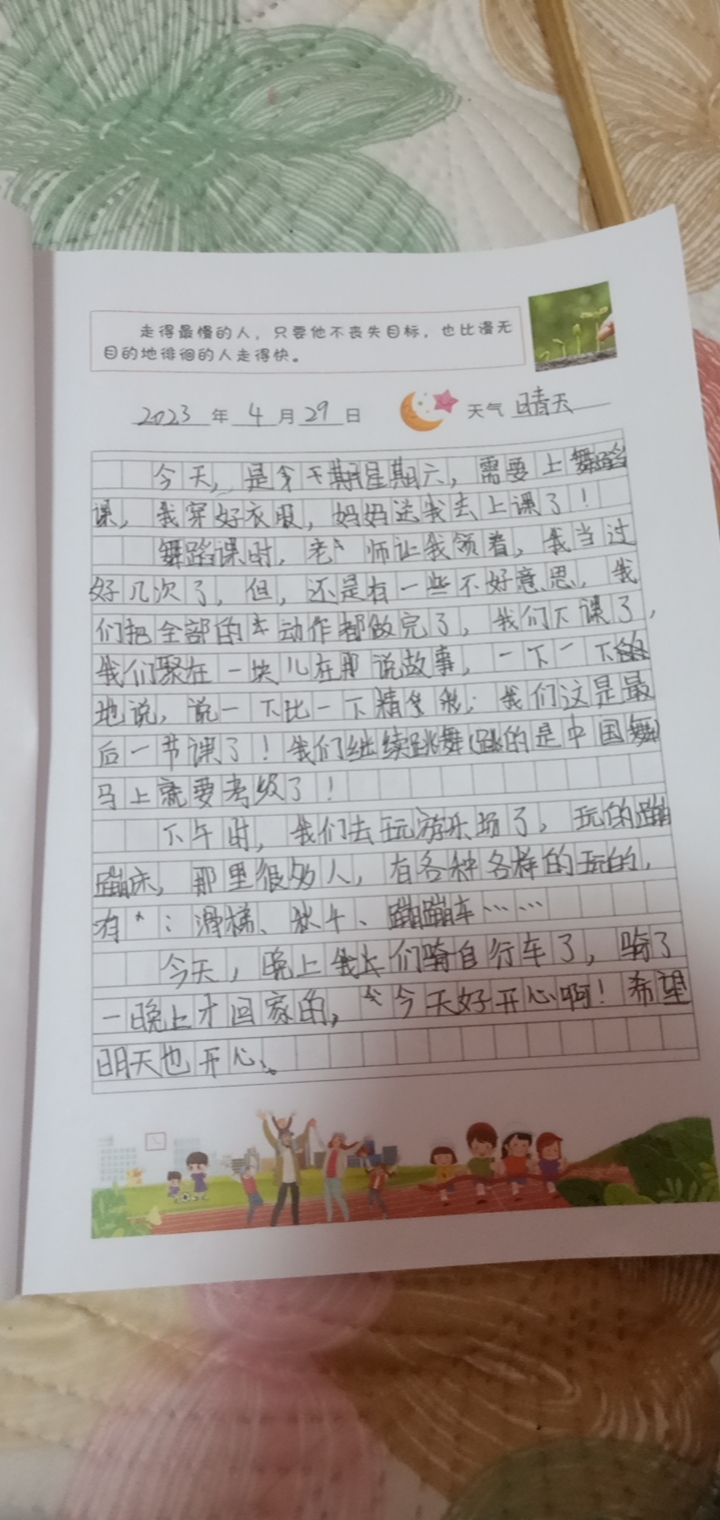 走得最慢的人，只要他不丧失目标，也比漫无
目的地徘徊的人走得快。
2023 年 4 月 29 日 天气 晴天
今天，是星期六，需要上舞蹈
课，我穿好衣服，妈妈送我去上课了！
舞蹈课时，老师让我领着，我当过
好几次了，但，还是有一些不好意思，我
们把全部的动作都做完了，我们下课了，
我们聚在一块儿在那说故事，一下一下
地说，说一下比一下精我；我们这是最
后一节课了！我们继续跳舞（跳的是中国舞）
马上就要考级了！
下午时，我们去玩游乐场了，玩的蹦
蹦床，那里很多人，有各种各样的玩的，
有：滑梯、秋千、蹦蹦车……
今天，晚上我们骑自行车了，骑了
一晚上才回家的，今天好开心啊！希望
明天也开心。